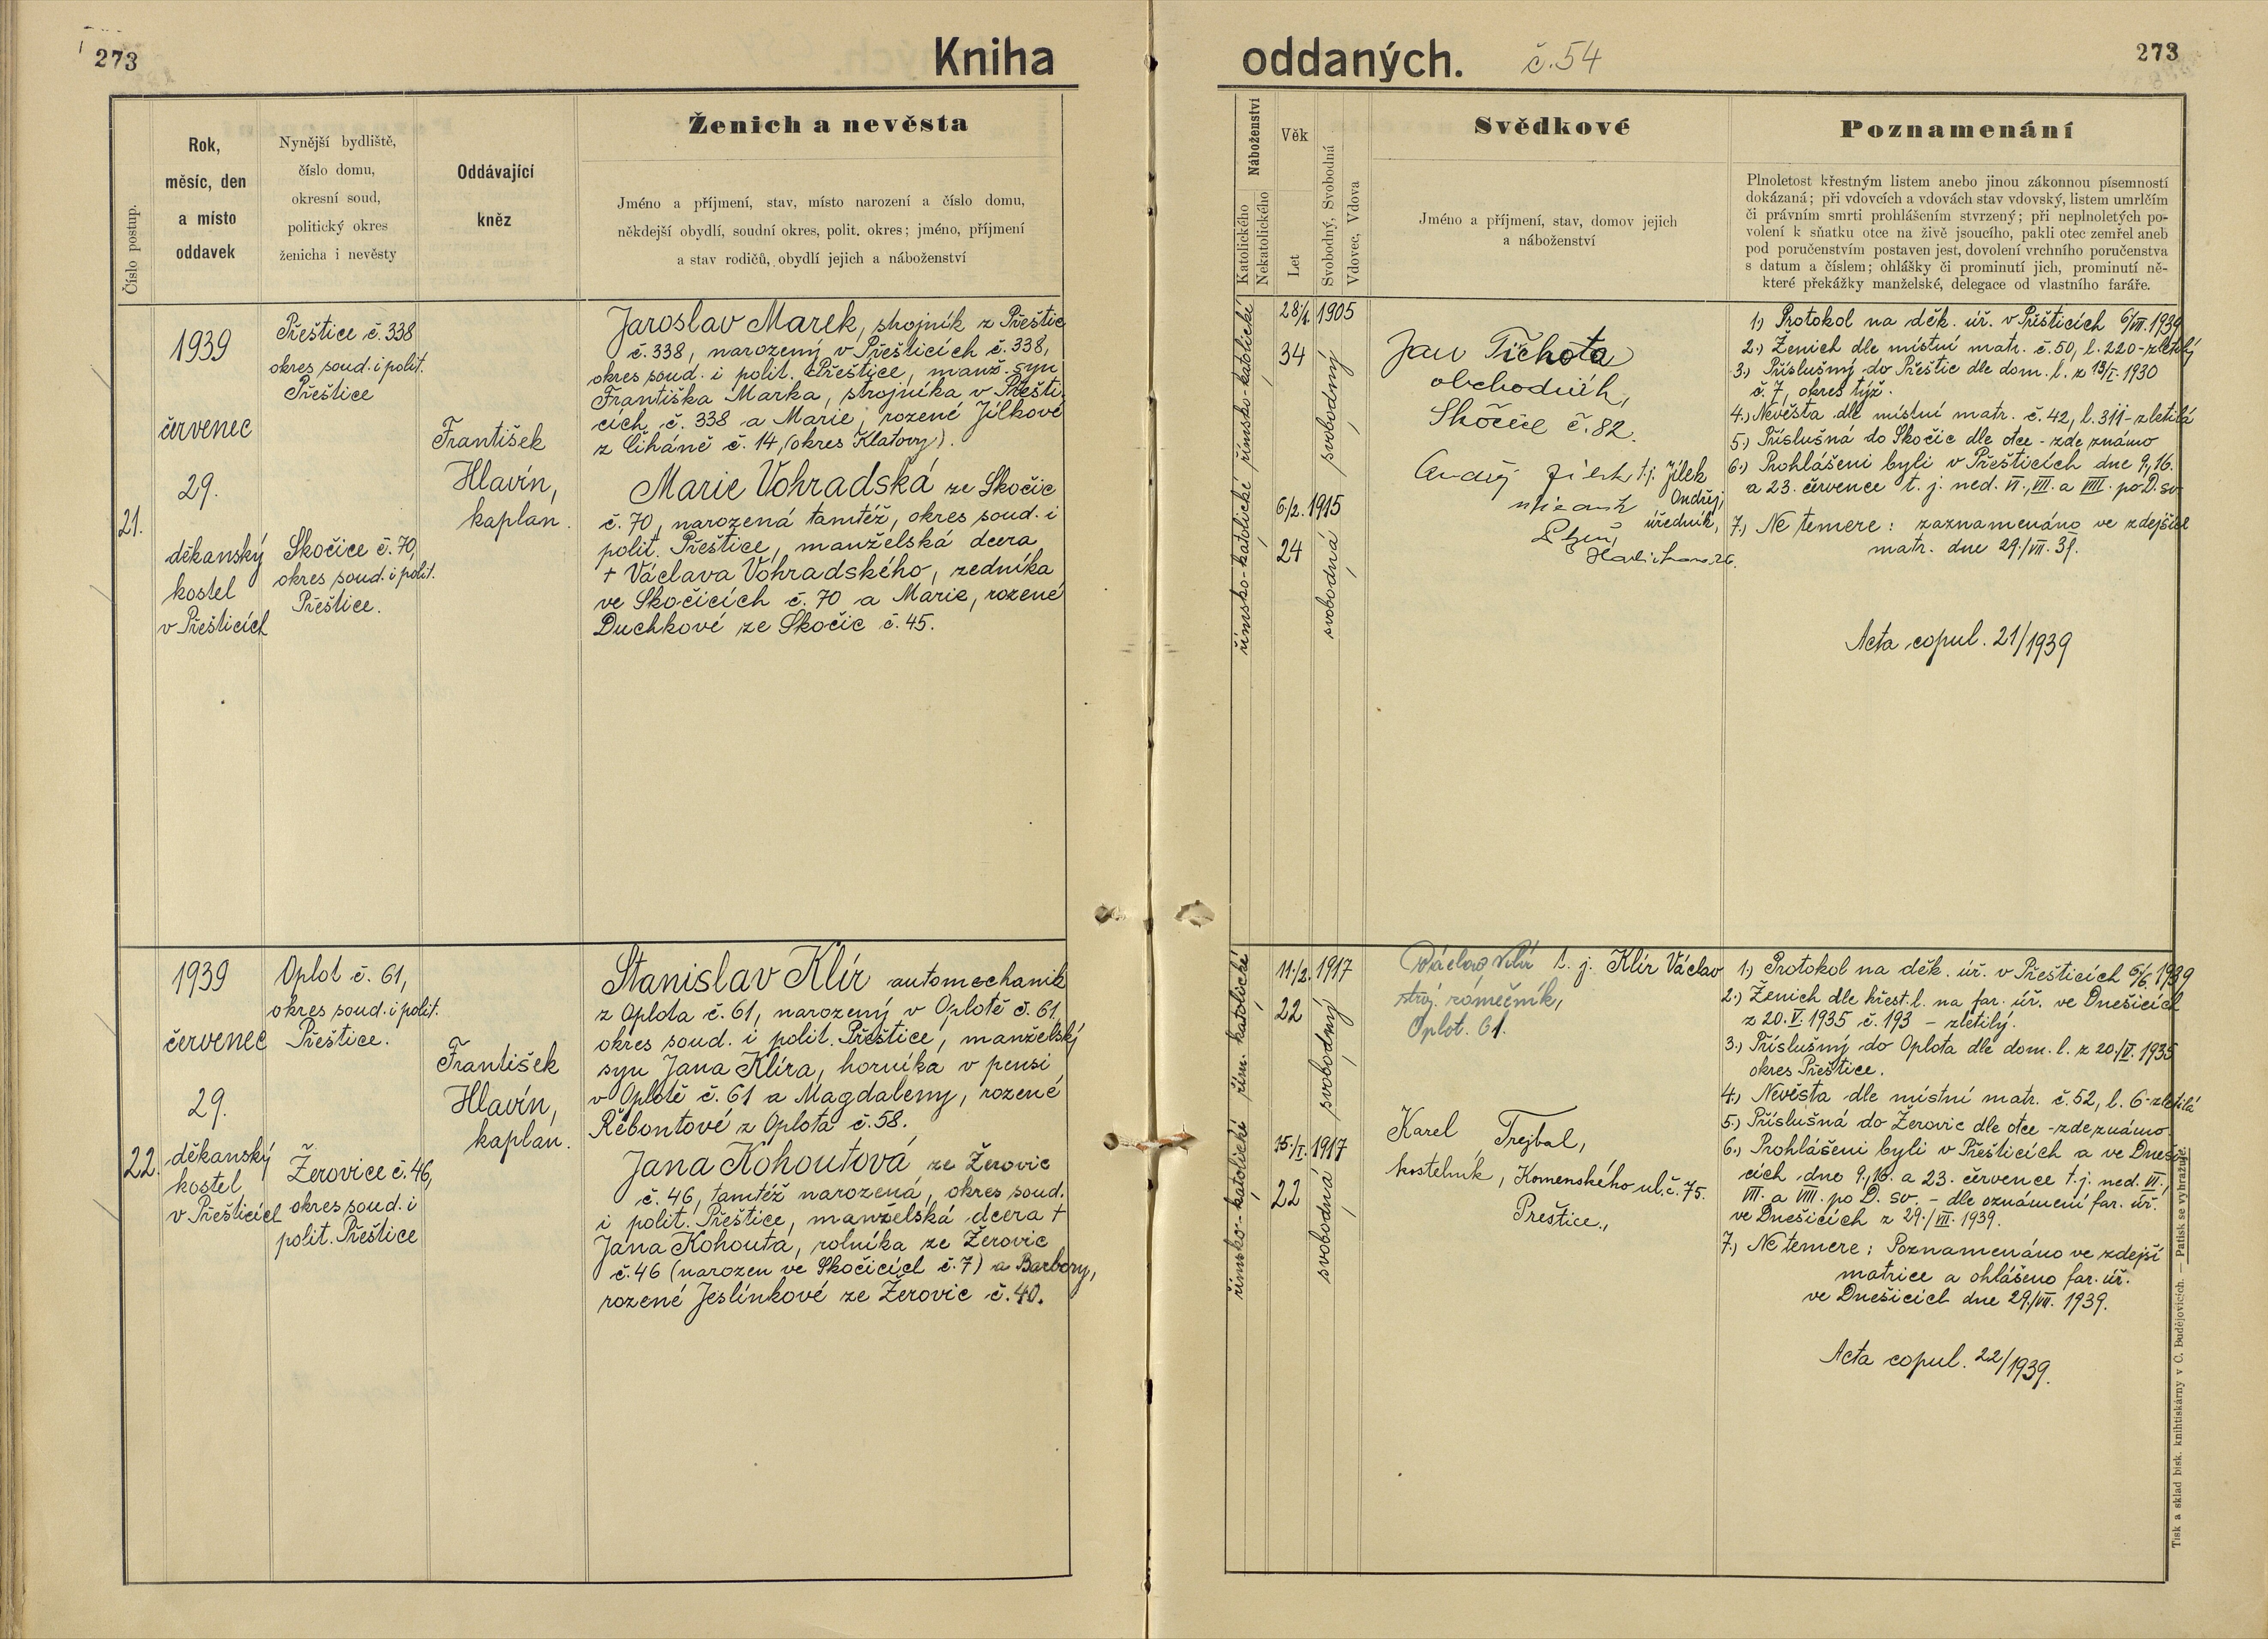 273
Kniha
oddaných.
č. 54
273
Číslo postup.
Rok,
měsíc, den
a místo
oddavek
Nynější bydliště,
číslo domu,
okresní soud,
politický okres
ženicha i nevěsty
Oddávající
kněz
Ženich a nevěsta
Jméno a příjmení, stav, místo narození a číslo domu,
někdejší obydlí, soudní okres, polit. okres; jméno, příjmení
a stav rodičů, obydlí jejich a náboženství
Náboženství
Katolického
Nekatolického
Věk
Let
Svobodný, Svobodná
Vdovec, Vdova
Svědkové
Jméno a příjmení, stav, domov jejich
a náboženství
Poznamenání
Plnoletost křestným listem anebo jinou zákonnou písemností
dokázaná; při vdovcích a vdovách stav vdovský, listem umrlčím
či právním smrti prohlášením stvrzený; při neplnoletých po-
volení k sňatku otce na živě jsoucího, pakli otec zemřel aneb
pod poručenstvím postaven jest, dovolení vrchního poručenstva
s datum a číslem; ohlášky či prominutí jich, prominutí ně-
které překážky manželské, delegace od vlastního faráře.
21.
1939
červenec
29.
děkanský
kostel
v Přešticích
Přeštice č. 338
okres soud. i polit.
Přeštice
Skočice č. 70,
okres soud. i polit.
Přeštice.
František
Hlavín,
kaplan.
Jaroslav Marek, strojník z Přeštic
č. 338, narozený v Přešticích č. 338,
okres soud. i polit. Přeštice, manž. syn
Františka Marka, strojníka v Přešti-
cích č. 338 a Marie, rozené Jílkové
z Číháně č. 14, (okres Klatovy).
Marie Vohradská ze Skočic
č. 70, narozená tamtéž, okres soud. i
polit. Přeštice, manželská dcera
† Václava Vohradského, zedníka
ve Skočicích č. 70 a Marie, rozené
Duchkové ze Skočic č. 45.
římsko-katolické
římsko-katolické
28/4. 1905
34
svobodný
6./2. 1915
24
svobodná
Jan Tichota
obchodník,
Skočice č. 82.
t.j. Jílek
Ondřej,
úředník,
Plzeň,
1.) Protokol na děk. úř. v Přešticích 6/VII. 1939
2.) Ženich dle místní matr. č. 50, l. 220 - zletilý
3.) Příslušný do Přeštic dle dom. l. z 13/I. 1930
č. 7, okres týž.
4.) Nevěsta dle místní matr. č. 42, l. 311 - zletilá
5.) Příslušná do Skočic dle otce - zde známo
6.) Prohlášeni byli v Přešticích dne 9., 16.
a 23. července t. j. ned. VI., VII. a VIII. po D. sv.
7.) Ne temere: zaznamenáno ve zdejší
matr. dne 29./VII. 39.
Acta copul. 21/1939
22.
1939
červenec
29.
děkanský
kostel
v Přešticích
Oplot č. 61,
okres soud. i polit.
Přeštice.
Žerovice č. 46,
okres soud. i
polit. Přeštice
František
Hlavín,
kaplan.
Stanislav Klír automechanik
z Oplota č. 61, narozený v Oplotě č. 61,
okres soud. i polit. Přeštice, manželský
syn Jana Klíra, horníka v pensi
v Oplotě č. 61 a Magdaleny, rozené
Řebontové z Oplota č. 58.
Jana Kohoutová ze Žerovic
č. 46, tamtéž narozená, okres soud.
i polit. Přeštice, manželská dcera †
Jana Kohouta, rolníka ze Žerovic
č. 46 (narozen ve Skočicích č. 7) a Barbory,
rozené Jeslínkové ze Žerovic č. 40.
řím. katolické
římsko-katolické
11./2. 1917
22
svobodný
15./I. 1917
22
svobodná
Václav Klír t. j. Klír Václav
stroj. zámečník,
Oplot. 61.
Karel Trejbal,
kostelník, Komenského ul. č. 75.
Přeštice.,
1.) Protokol na děk. úř. v Přešticích 6/6. 1939
2.) Ženich dle křest. l. na far. úř. ve Dnešicích
z 20. V. 1935 č. 193 - zletilý.
3.) Příslušný do Oplota dle dom. l. z 20./V. 1935
okres Přeštice.
4.) Nevěsta dle místní matr. č. 52, l. 6 - zletilá
5.) Příslušná do Žerovic dle otce - zde známo
6.) Prohlášeni byli v Přešticích a ve Dneši-
cích dne 9., 16. a 23. července t. j. ned. VI.,
VII. a VIII. po D. sv. - dle oznámení far. úř.
ve Dnešicích z 29./VII. 1939.
7.) Ne temere: Poznamenáno ve zdejší
matrice a ohlášeno far. úř.
ve Dnešicích dne 29./VII. 1939.
Acta copul. 22/1939.
Tisk a sklad bisk. knihtiskárny v Č. Budějovicích. — Patisk se vyhražuje.